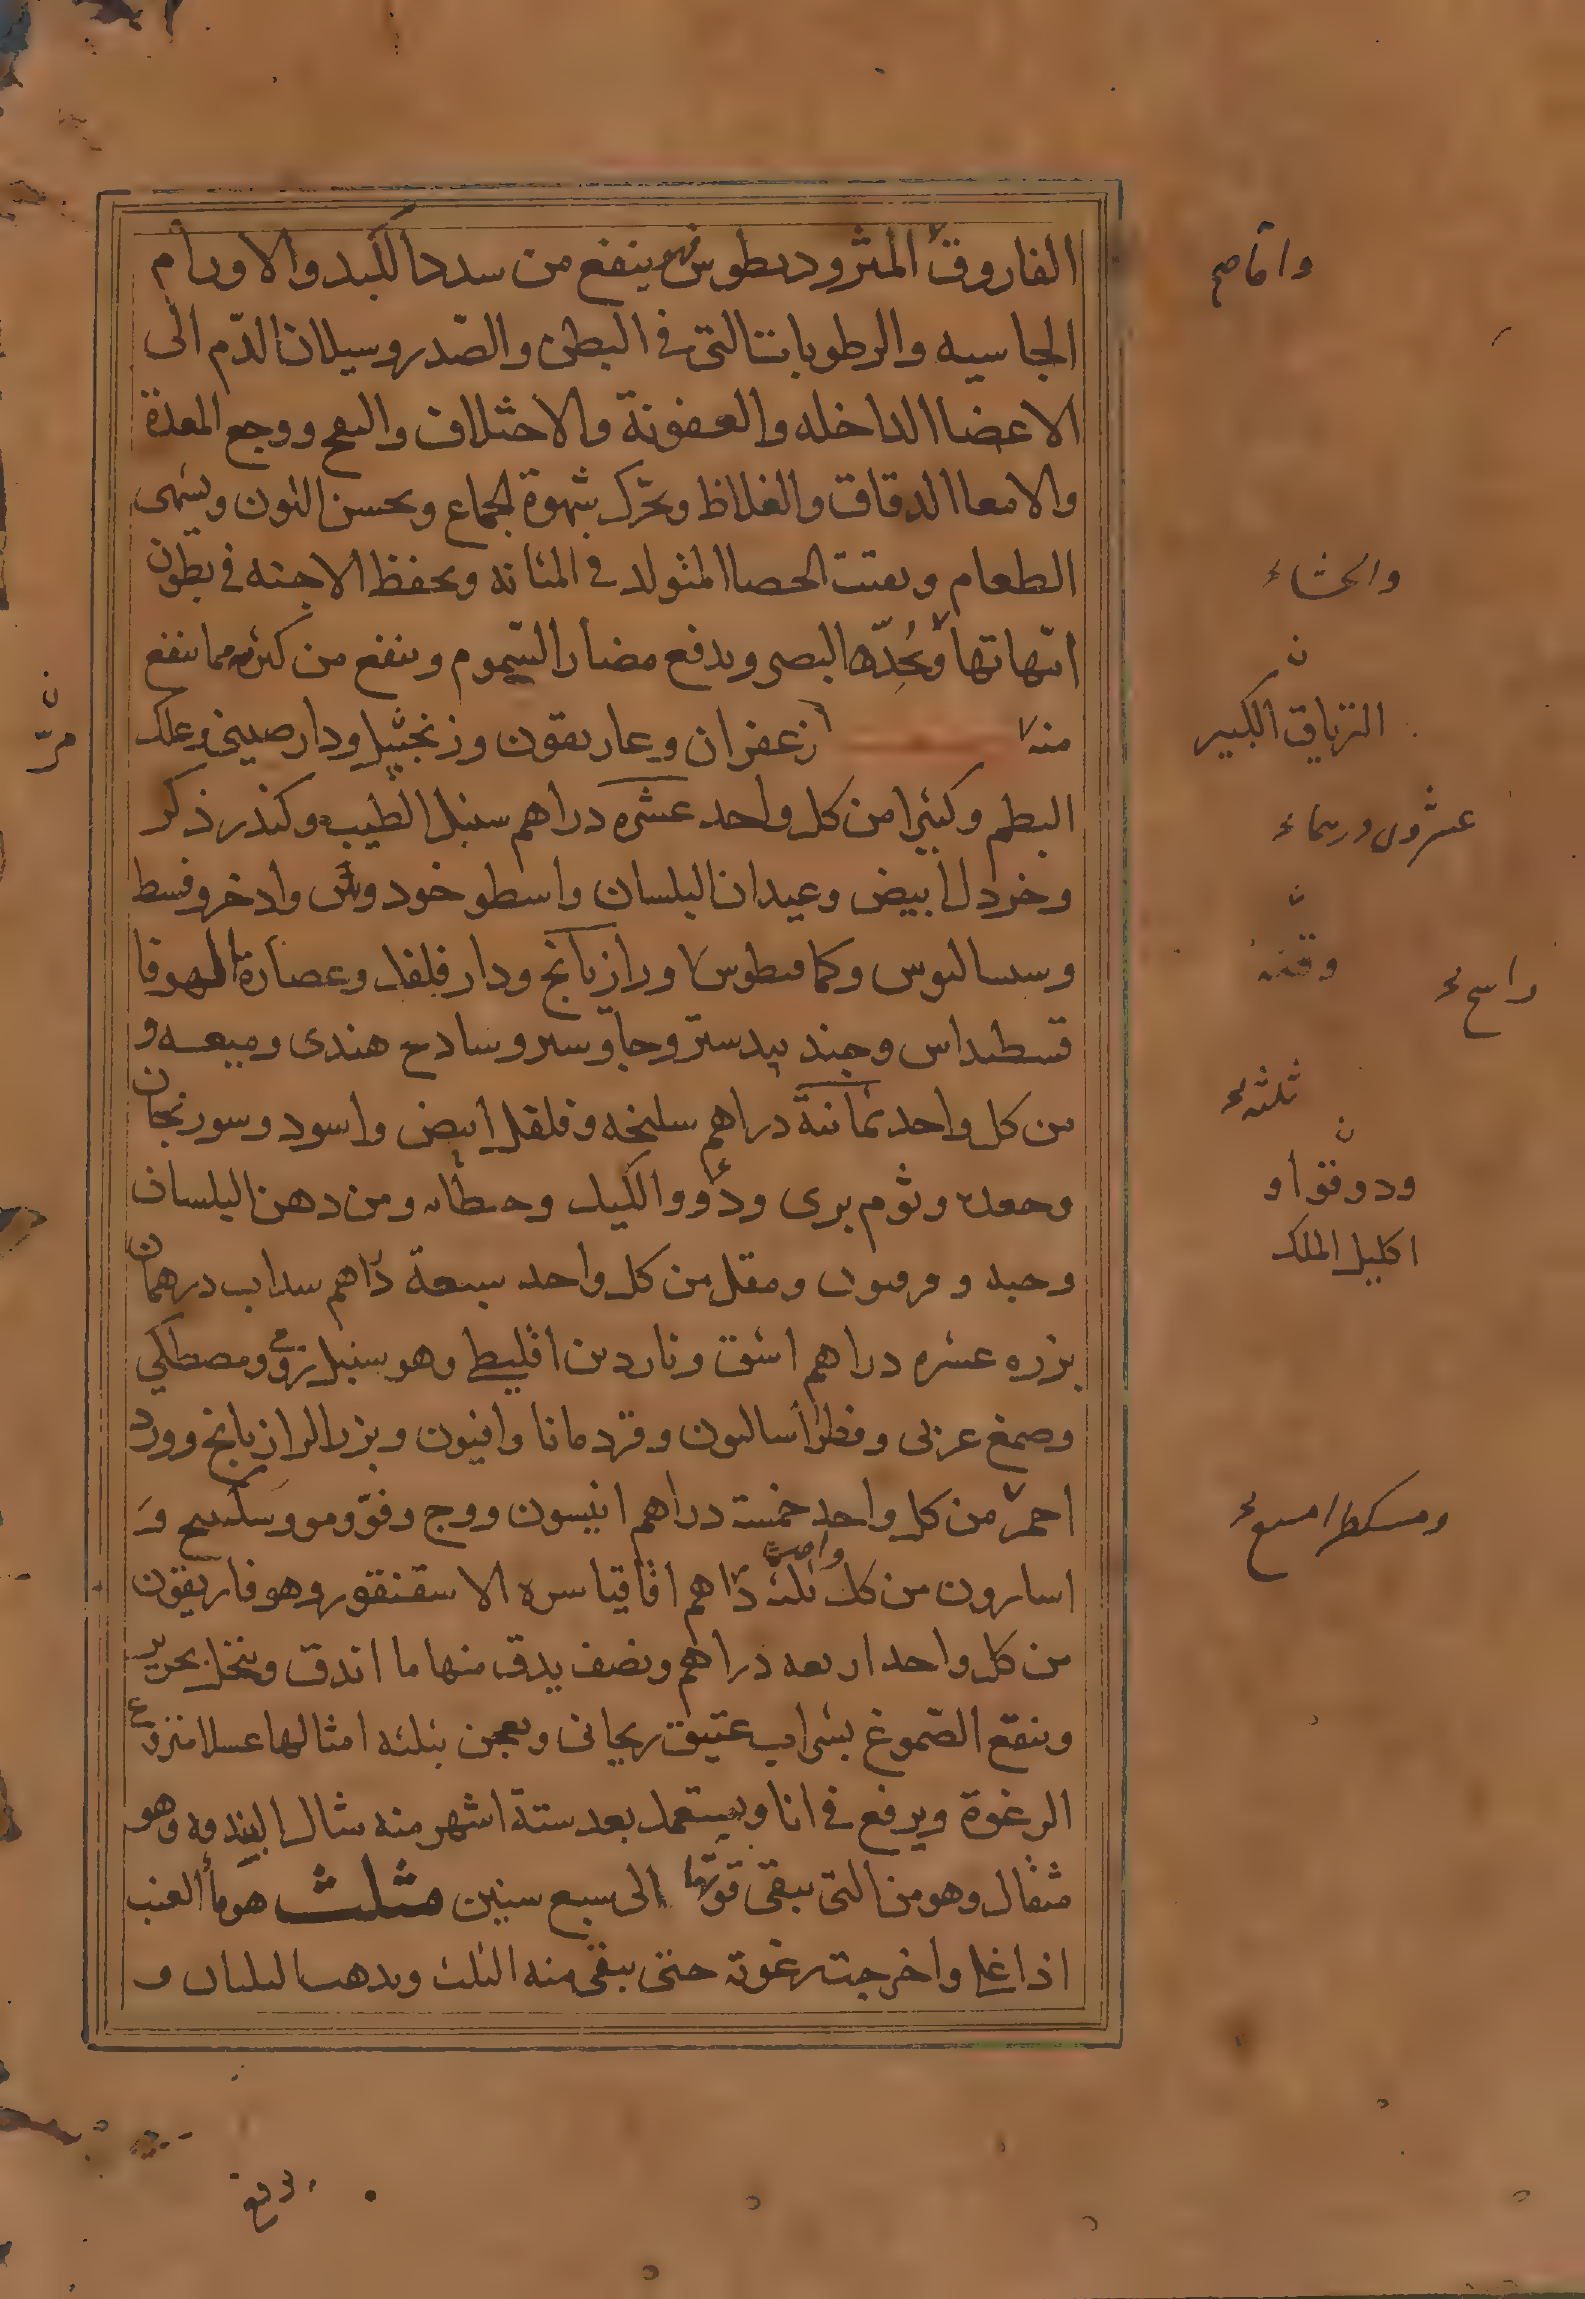 الفاروق المثروديطوس فهو ينفع من سدد الكبد والاورام
الجاسيه والرطوبات التى فى البطن والصّدر وسيلان الدّم الى
الاعضا الداخله والعفونة والاختلاف والنفخ ووجع المعدة
والامعا الدقاق والغلاظ ويحرّك شهوة الجماع ويحسن اللون ويشهى
الطعام ويفتت الحصا المتولد فى المثانه ويحفظ الاجنه فى بطون
امّهاتها ويُحِدّ البصر ويدفع مضار السّموم وينفع من كثير مما ينفع
منه زعفران وغاريقون وزنجبيل ودارصينى وعلك
البطم وكثيرا من كل واحد عشره دراهم سنبل الطيب وكندر ذكر
وخردل ابيض وعيدان البلسان واسطوخودوس واذخر وقسط
وسساليوس وكمافيطوس ورازيانج ودار فلفل وعصارة
وجند بيدستر وجاوسير وسادج هندى وميعه و
من كل واحد ثمانية دراهم سليخه وفلفل ابيض واسود وسورنجان
وجعده وثوم برى ودوو الكيل وحنطانه ومن دهن البلسان
وحبه ومقل من كل واحد سبعة دراهم سداب درهمان
بزره عشره دراهم اشق وناردين اقليطى وهو سنبل رومى ومصطكى
وصمغ عربى وفطراساليون وقردمانا وافيون وبزر الرازيانج وورد
احمر من كل واحد خمسة دراهم انيسون ووج وفوّ ومو وسكبينج و
اسارون من كل واحد ثلثة دراهم اقاقيا سره الاسقنقور وهوفاريقون
من كل واحد اربعه دراهم ونصف يدق منها ما اندق وينخل بحرير
وينقع الصّموغ بشراب عتيق ريحانى ويعجن بثلثه امثالها عسلا منزوع
الرغوة ويرفع فى انا ويستعمل بعد ستة اشهر منه مثال البندقه وهو
مثقال وهو من التى يبقى قوتها الى سبع سنين مثلث هو ماء العنب
اذا غلا واخرجت رغوته حتى يبقى منه الثلث ويذهب الثلثان و
واقاصح
والحشاء
الترياق الكبير
مرّ
وقنه
ثلثه
ودوقوا و
اكليل الملك